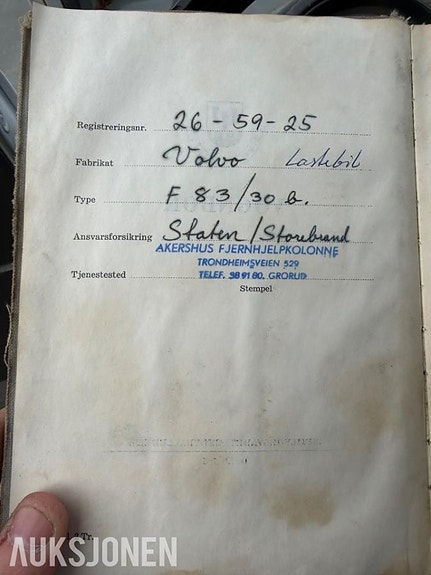 Registreringsnr. 26 - 59 - 25
Fabrikat Volvo Lastebil
Type F 83/30 b.
Ansvarsforsikring Staten/Storebrand
AKERSHUS FJERNHJELPKOLONNE
TRONDHEIMSVEIEN 529
Tjenestested TELEF. 38 91 80. GRORUD
Stempel
Tr.
AUKSJONEN